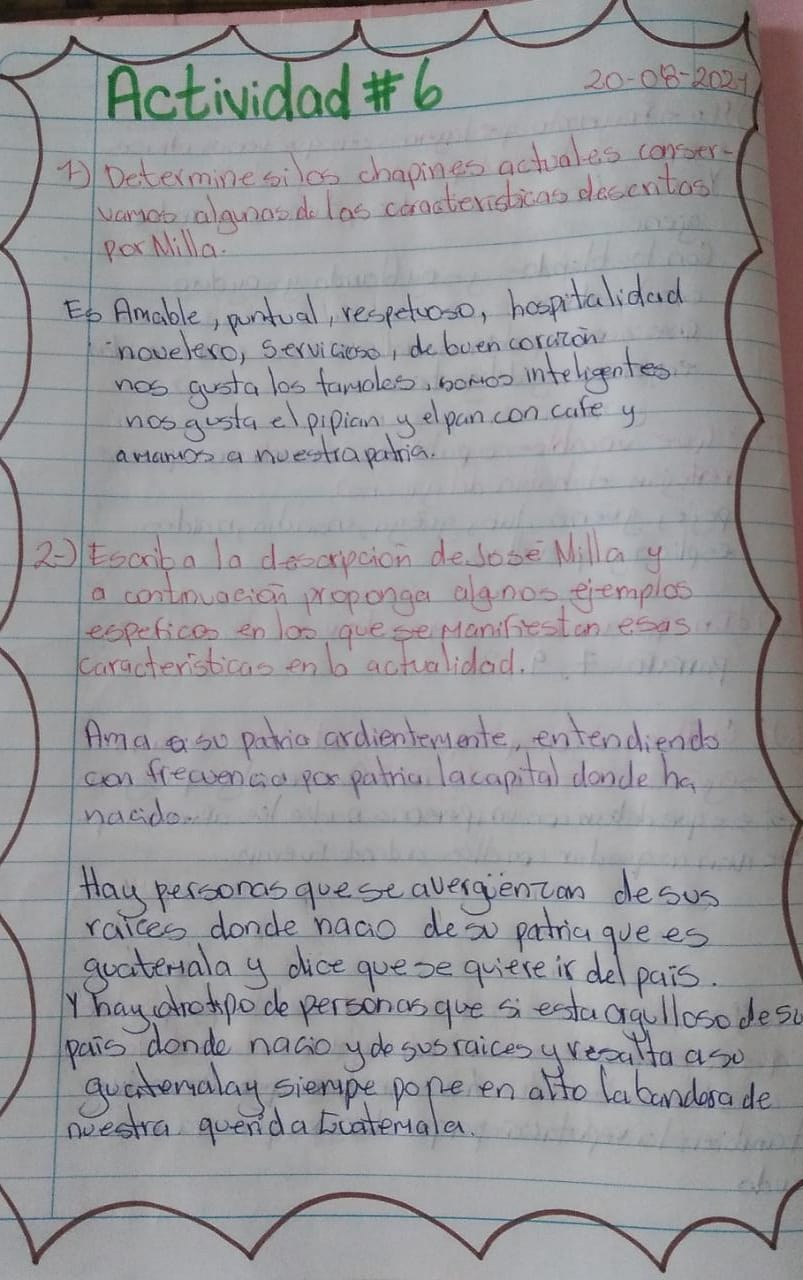 Actividad #6
20-08-2021
1) Determine si los chapines actuales conser-
vamos algunas de las caracteristicas descritas
por Milla.
Es Amable, puntual, respetuoso, hospitalidad
novelero, servicioso, de buen corazón
nos gusta los tamales, somos inteligentes
nos gusta el pipian y el pan con cafe y
amamos a nuestra patria.
2-) Escriba la descripción de José Milla y
a continuación proponga algnos ejemplos
espeficos en los que se manifiestan esas
características en la actualidad.
Ama a su patria ardientemente, entendiendo
con frecuencia por patria la capital donde ha
nacido.
Hay personas que se avergüenzan de sus
raíces donde nacio de su patria que es
guatemala y dice que se quiere ir del país.
Y hay otro tipo de personas que si esta orgulloso de su
país donde nacio y de sus raices y resalta a su
guatemala y siempe pone en alto la bandera de
nuestra querida Guatemala.